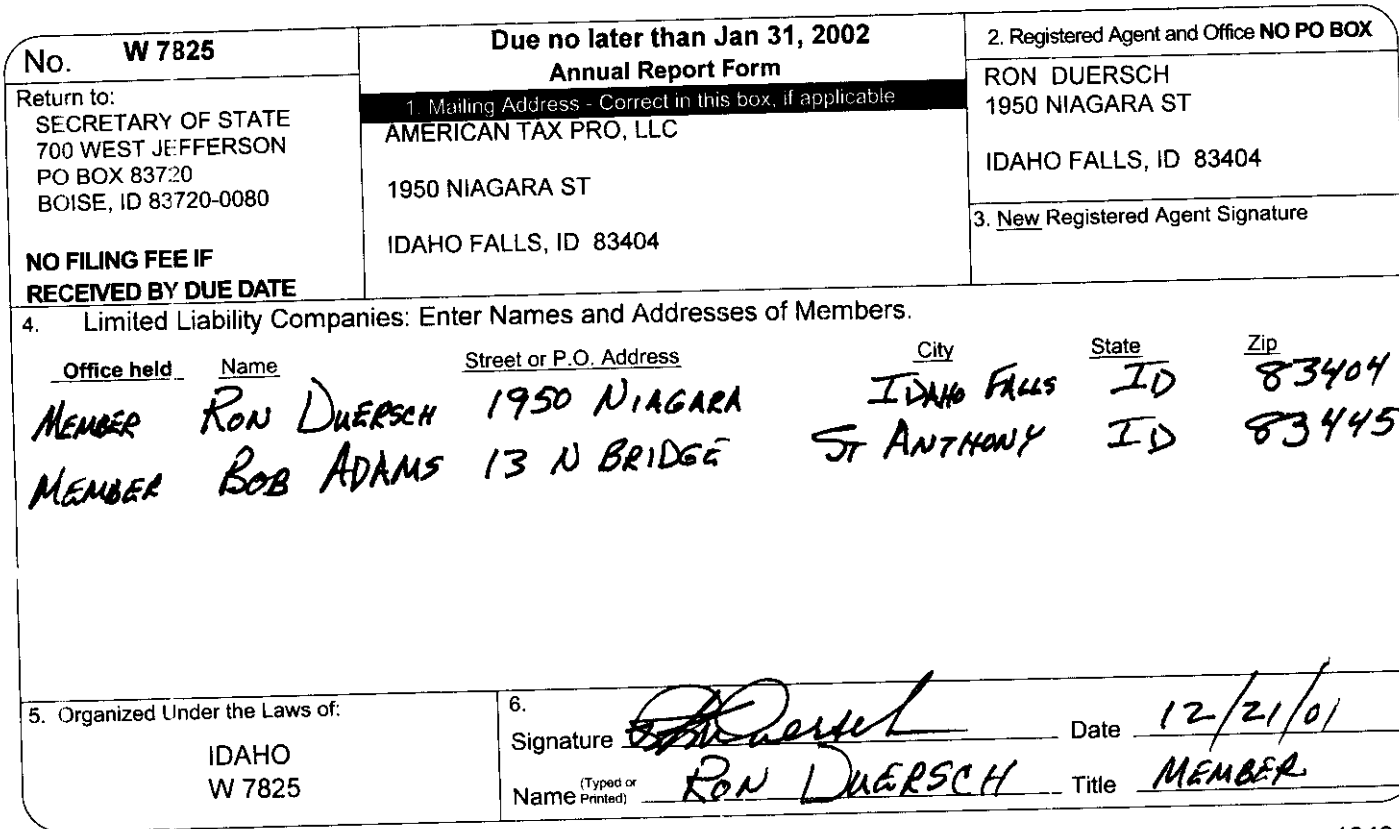 No. W 7825
Return to:
SECRETARY OF STATE
700 WEST JEFFERSON
PO BOX 83720
BOISE, ID 83720-0080
NO FILING FEE IF
RECEIVED BY DUE DATE
Due no later than Jan 31, 2002
Annual Report Form
1. Mailing Address - Correct in this box, if applicable
AMERICAN TAX PRO, LLC
1950 NIAGARA ST
IDAHO FALLS, ID 83404
2. Registered Agent and Office NO PO BOX
RON DUERSCH
1950 NIAGARA ST
IDAHO FALLS, ID 83404
3. New Registered Agent Signature
4. Limited Liability Companies: Enter Names and Addresses of Members.
Office held Name Street or P.O. Address City State Zip
MEMBER RON DUERSCH 1950 NIAGARA IDAHO FALLS ID 83404
MEMBER BOB ADAMS 13 N BRIDGE ST ANTHONY ID 83445
5. Organized Under the Laws of:
IDAHO
W 7825
6.
Signature Duersch Date 12/21/01
Name (Typed or Printed) RON DUERSCH Title MEMBER